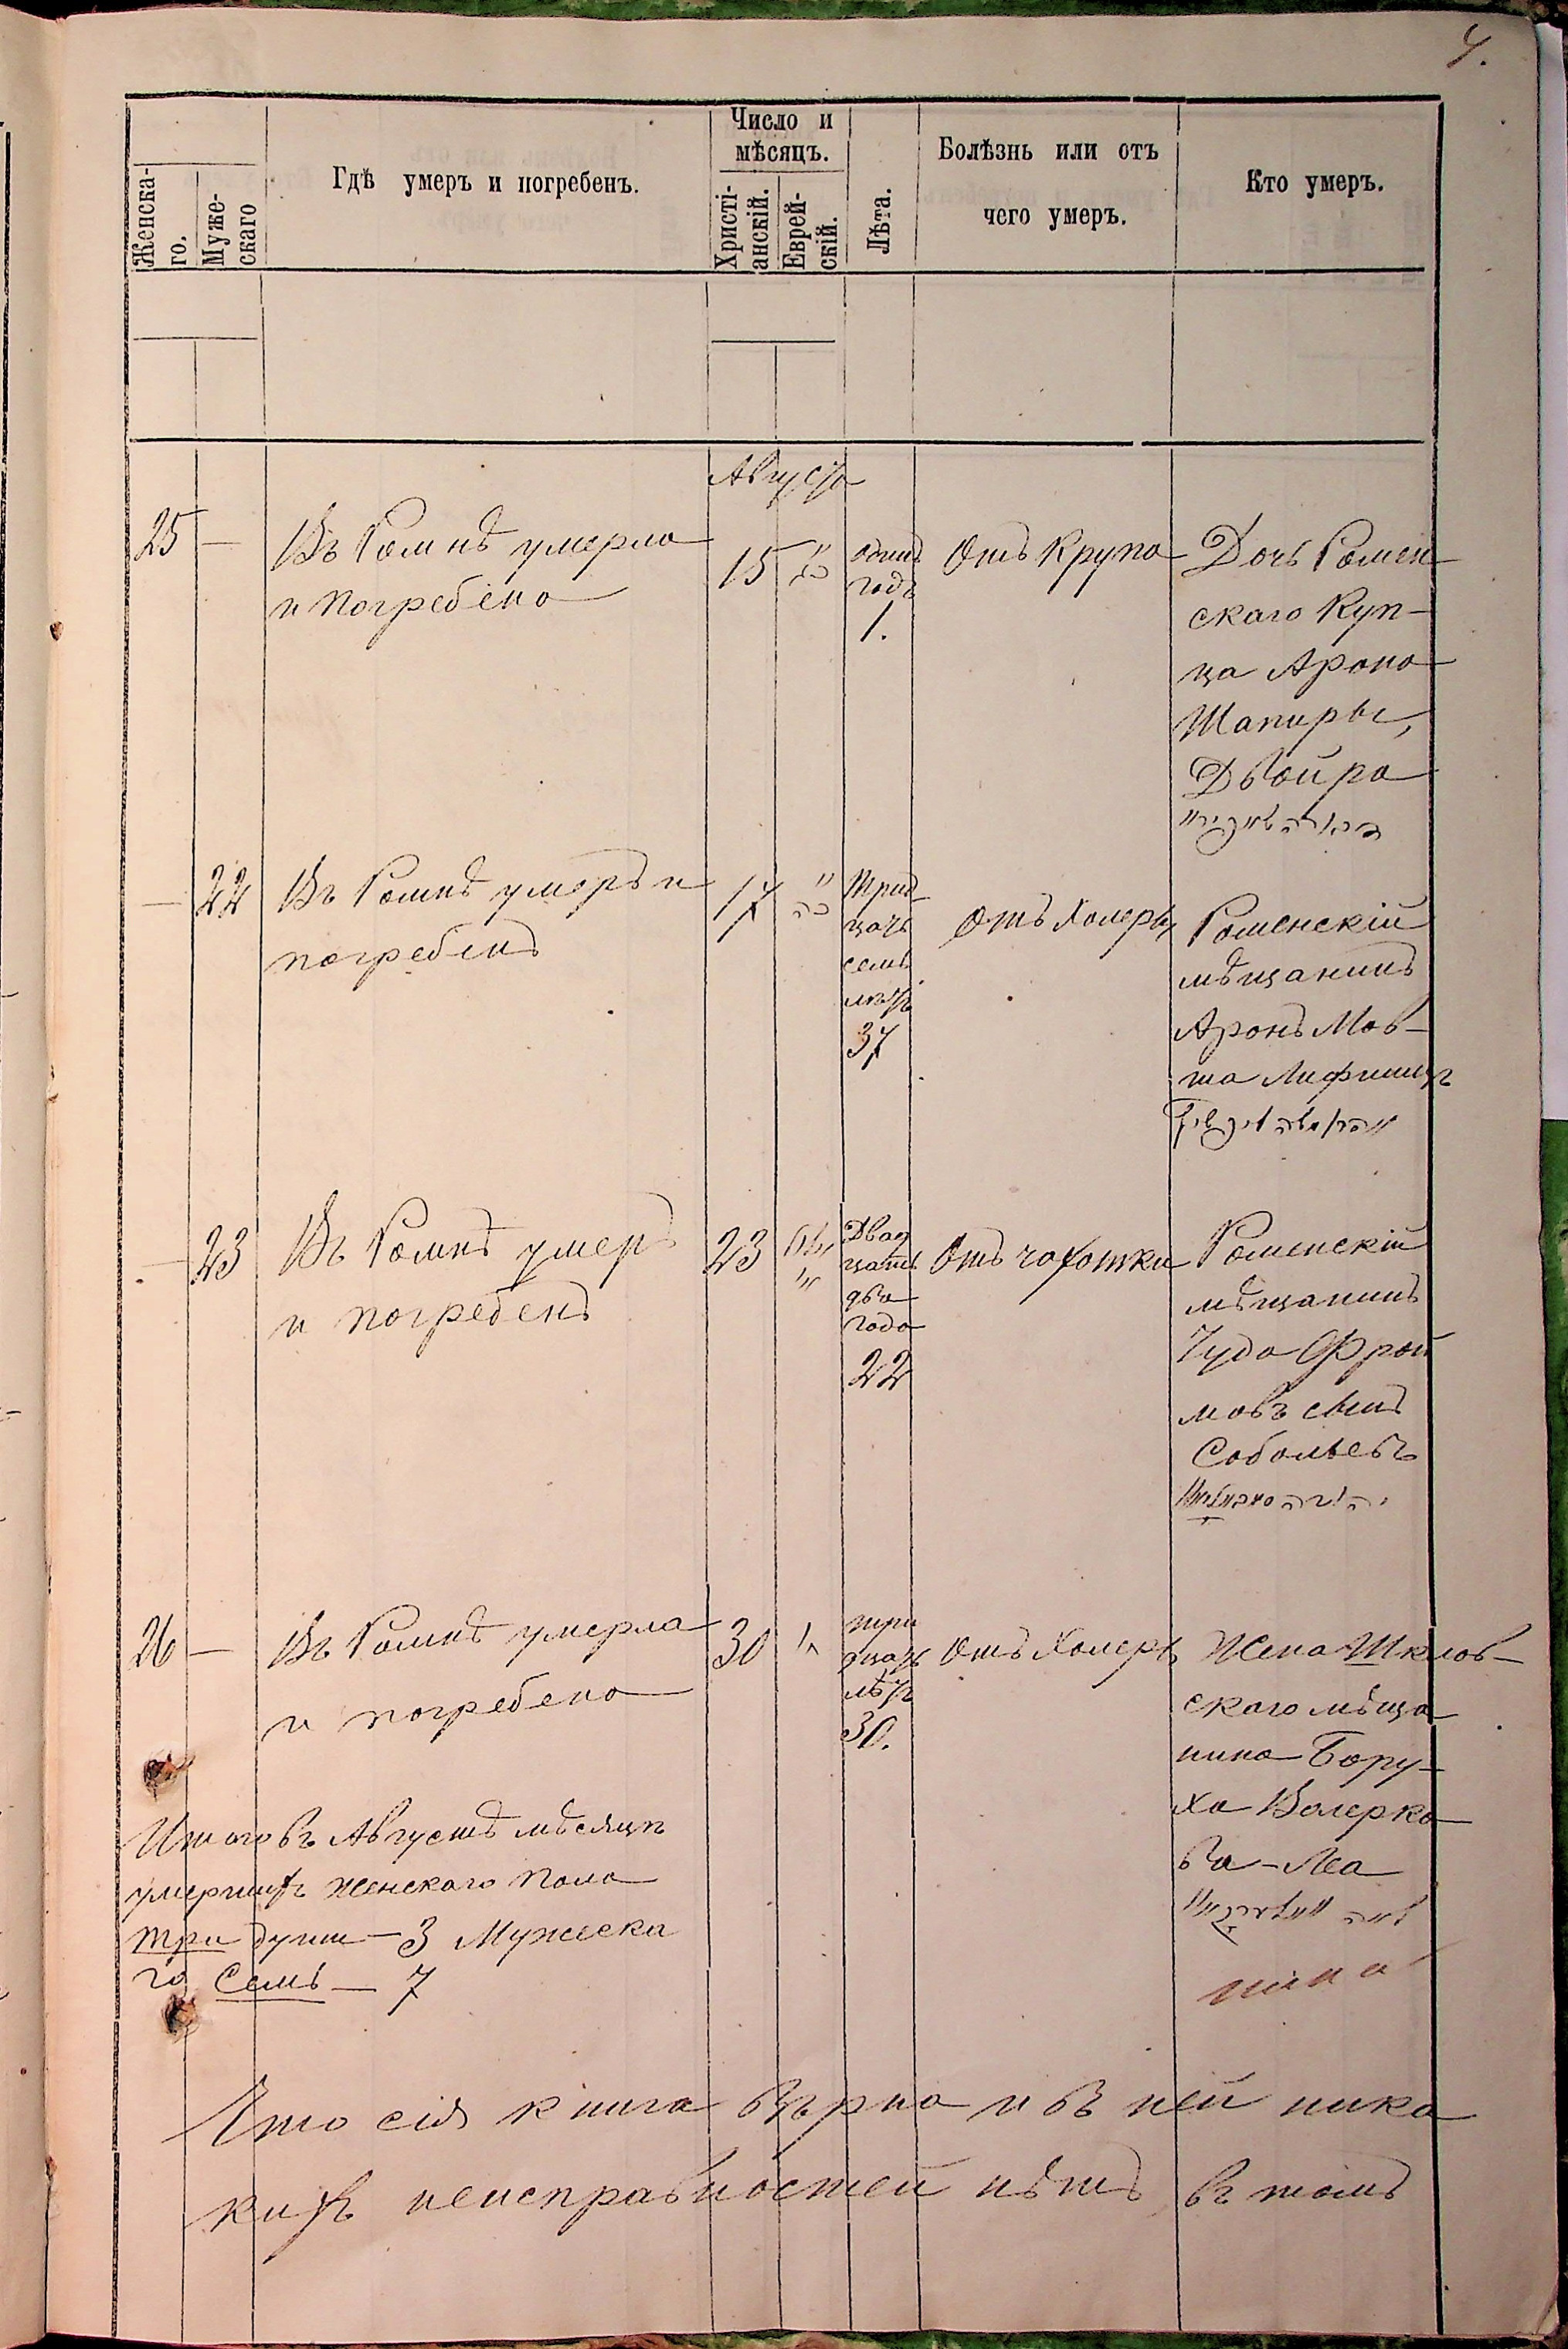 4.
Женска-
го.
Муже-
скаго
Гдѣ умеръ и погребенъ.
Число и
мѣсяцъ.
Христі-
анскій.
Еврей-
скій.
Лѣта.
Болѣзнь или отъ
чего умеръ.
Кто умеръ.
Августа
25 —
Въ Ромнѣ умерла
и погребена
15
одинъ
годъ
1.
Отъ Крупа
Дочь Ромен
скаго Куп-
ца Арона
Шапиры,
Двойра
— 22
Въ Ромнѣ умеръ и
погребенъ
17
כה
Трид-
цать
семь
лѣтъ
37
Отъ Холеры
Роменскій
мѣщанинъ
Аронъ Мов-
ша Лифшицъ
— 23
Въ Ромнѣ умеръ
и погребенъ
23
Двад
цать
два
года
22
Отъ чахотки
Роменскій
мѣщанинъ
Іуда Фрой
мовъ сынъ
Собольевъ
26 —
Въ Ромнѣ умерла
и погребена
30
три
дцать
лѣтъ
30.
Отъ Холеры
Жена Шклов-
скаго мѣща
нина Бору-
ха Валерко
ва - Леа
Итого въ Августѣ мѣсяцѣ
умершихъ женскаго пола
три души — 3 Мужеска
го Семь — 7
Что сія книга вѣрна и въ ней ника
кихъ неисправностей нѣтъ, въ томъ